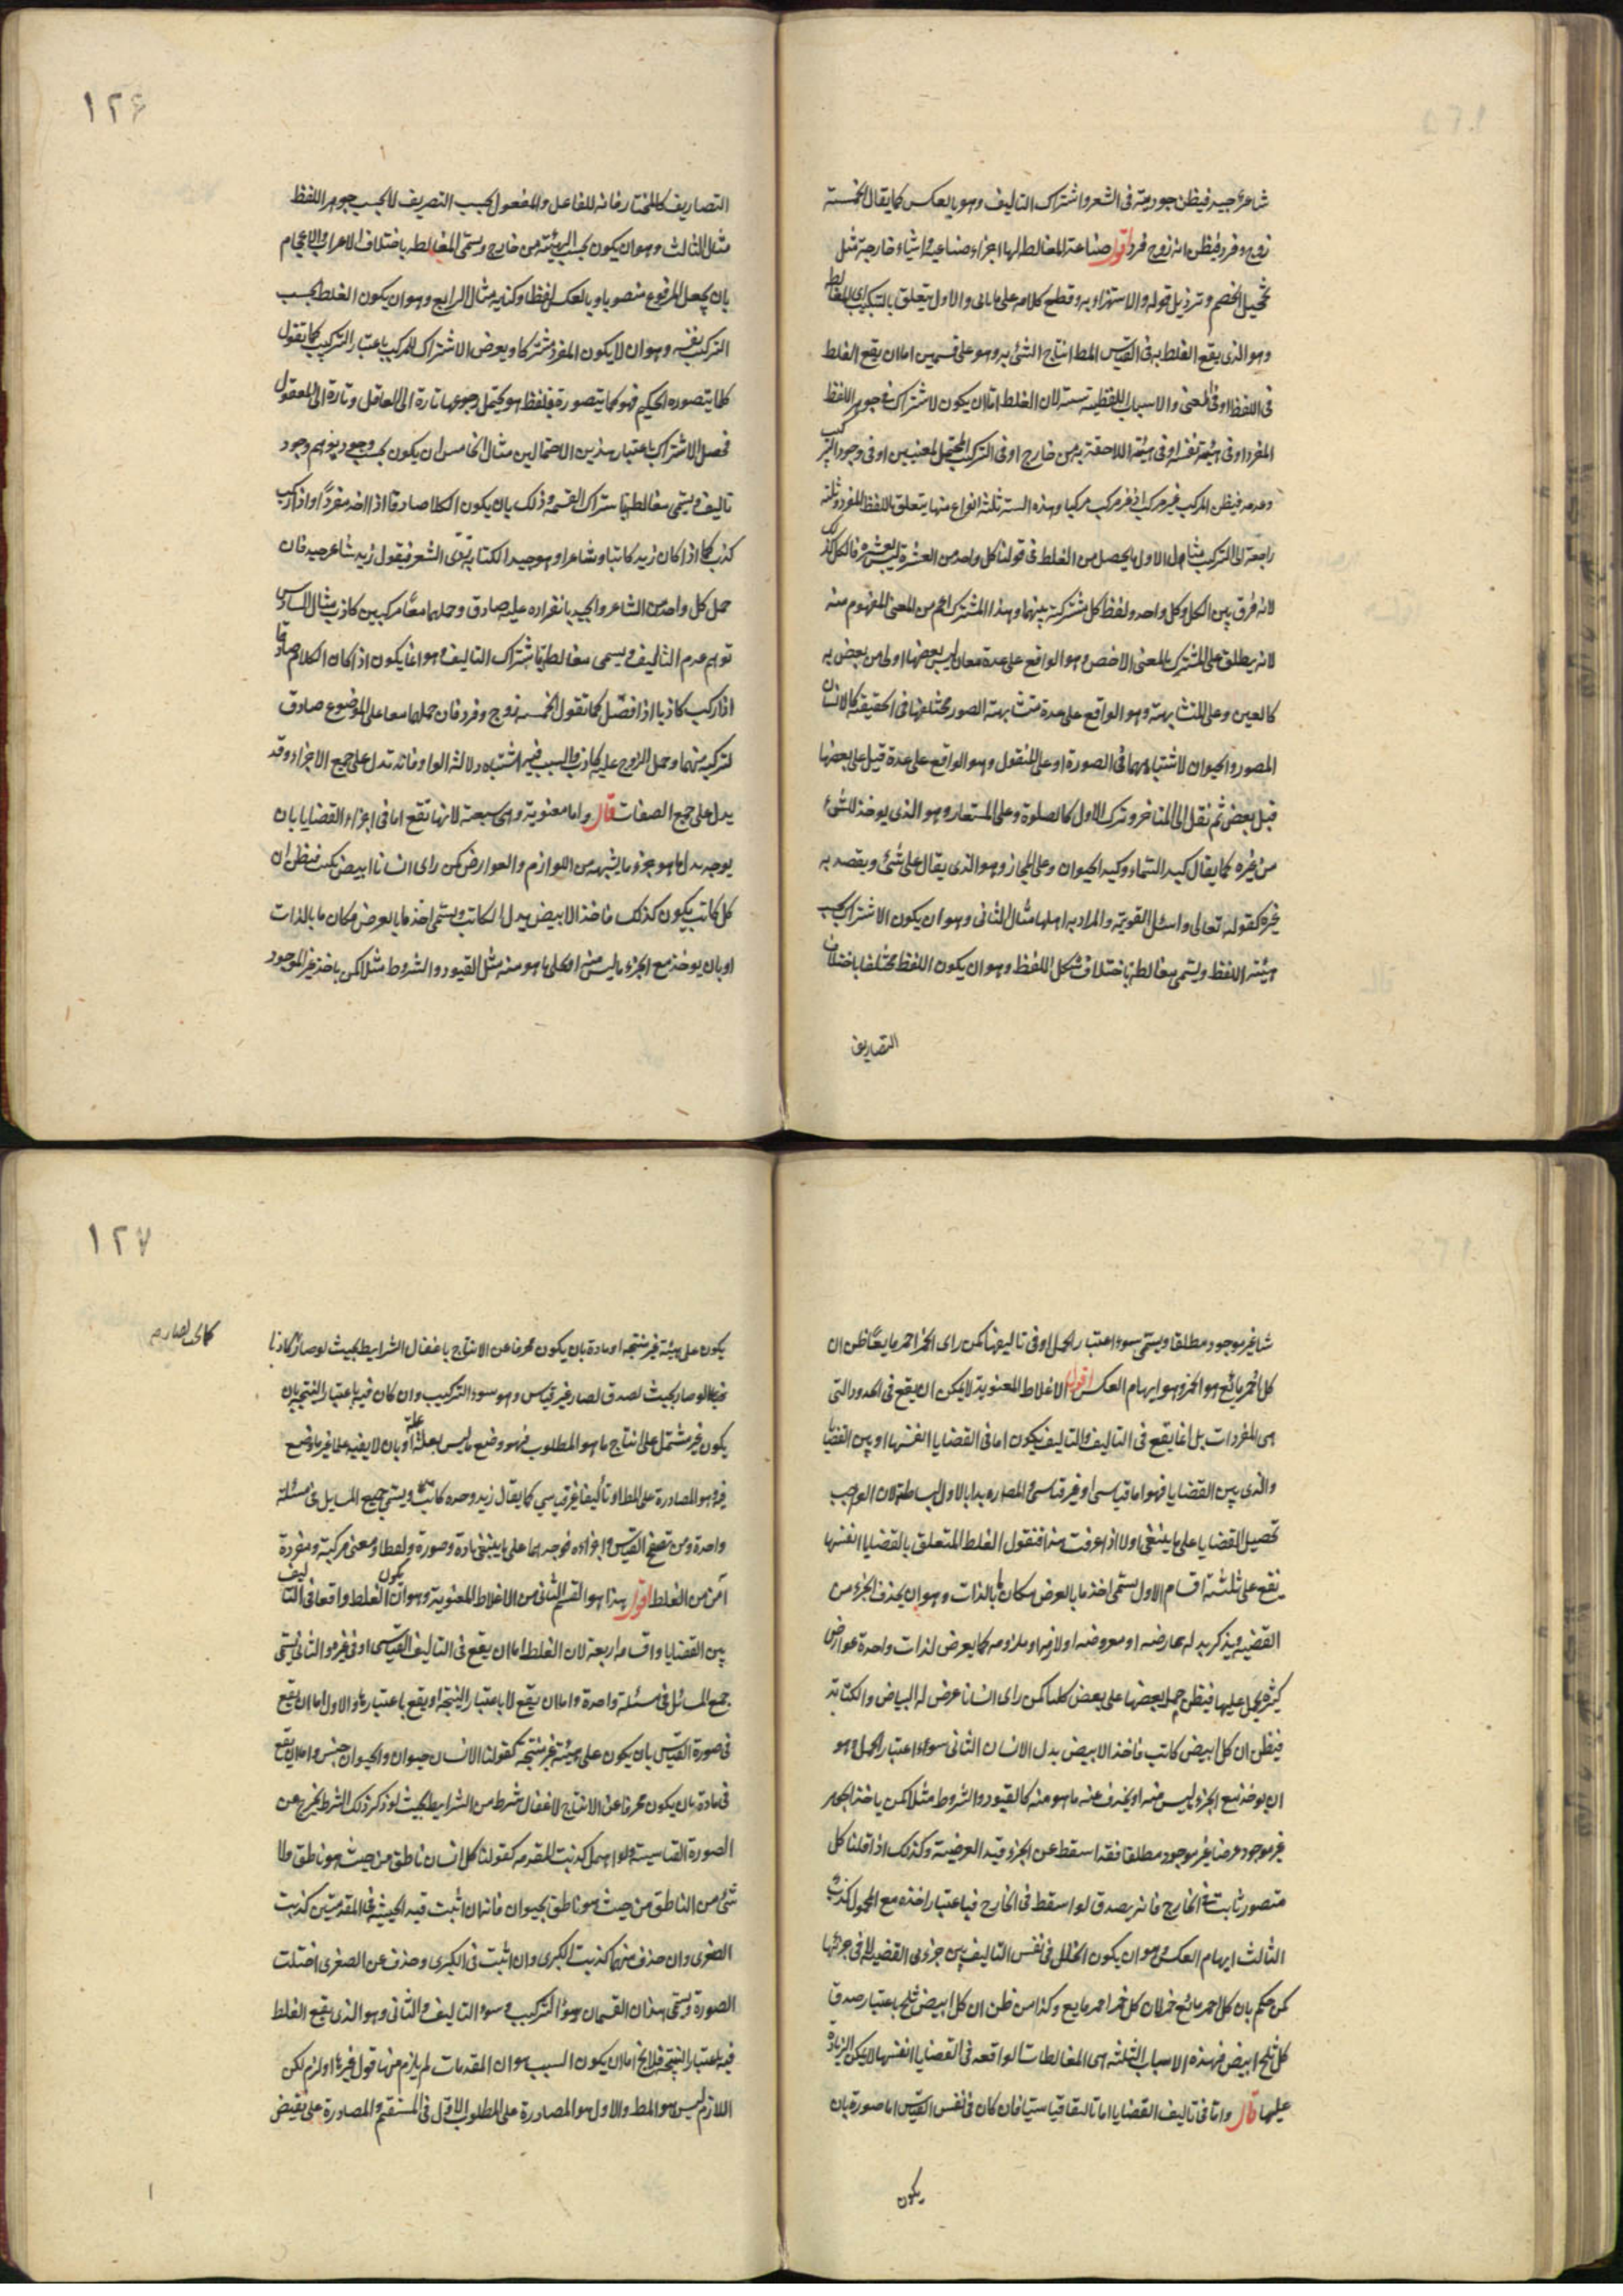 شاعر جيد فيظن جودته فى الشعر واشتراك التاليف وهو بالعكس كما يقال الخمسة
زوج وفرد فيظن انه زوج فرد اقول صناعة المغالطة لها اجزاء صناعية واشياء خارجة مثل
تخجيل الخصم وترذيل قوله والاستهزاء به وقطع كلامه على ما ياتى والاول يتعلق بالتبكيت اى المغالط
وهو الذى يقع الغلط به فى القياس المط انتاج الشئ به وهو على قسمين اما ان يقع الغلط
فى اللفظ او فى المعنى والاسباب اللفظية ستة لان الغلط اما ان يكون لاشتراك فى جوهر اللفظ
المفرد او فى هيئته نفسه او فى هيئته اللاحقة به من خارج او فى التركيب المحتمل لمعنيين او فى وجود التركيب
وعدمه فيظن المركب غير مركب او غير مركب مركبا وهذه الستة ثلثة انواع منها يتعلق باللفظ المفرد وثلثة
راجعة الى التركيب مثال الاول ما يحصل من الغلط فى قولنا كل واحد من العشرة ليس بعشرة فالكل كذلك
لانه فرق بين الكل وكل واحد ولفظ كل مشتركة بينهما وهذا المشترك اعم من المعنى المفهوم منه
لانه يطلق على المشترك بالمعنى الاخص وهو الواقع على عدة معان ليس بعضها اولى من بعض به
كالعين وعلى المتشابهة وهو الواقع على عدة متشابهة الصور مختلفها فى الحقيقة كالانسان
المصور والحيوان لاشتباههما فى الصورة او على المنقول وهو الواقع على عدة قيل على بعضها
قبل بعض ثم نقل الى المتاخر وترك الاول كالصلوة وعلى المستعار وهو الذى يوخذ للشئ
من غيره كما يقال كبد السماء وكبد الحيوان وعلى المجاز وهو الذى يقال على شئ ويقصد به
غيره كقوله تعالى واسئل القرية والمراد به اهلها مثال الثانى وهو ان يكون الاشتراك بحسب
هيئة اللفظ ويسمى مغالطة باختلاف شكل اللفظ وهو ان يكون اللفظ مختلفا باختلاف
التصاريف
١٢٦
التصاريف كالمختار فانه للفاعل والمفعول بحسب التصريف لا بحسب جوهر اللفظ
مثال الثالث وهو ان يكون بحسب الهيئة من خارج ويسمى المغالطة باختلاف الاعراب والاعجام
بان يجعل المرفوع منصوبا وبالعكس لفظا وكتابة مثال الرابع وهو ان يكون الغلط بحسب
التركيب نفسه وهو ان لا يكون المفرد مشتركا ويعرض الاشتراك للمركب باعتبار التركيب كما تقول
كلما يتصوره الحكيم فهو كما يتصوره فلفظ هو يحتمل رجوعها تارة الى العاقل وتارة الى المعقول
فحصل الاشتراك باعتبار هذين الاحتمالين مثال الخامس ان يكون بحسب وجود يتوهم وجود
تاليف ويسمى مغالطة باشتراك القسمة وذلك بان يكون الكلام صادقا اذا اخذ مفردا واذا ركب
كذب كما اذا كان زيد كاتبا وشاعرا وهو جيد الكتابة ردى الشعر فيقول زيد شاعر جيد فان
حمل كل واحد من الشاعر والجيد بانفراده عليه صادق وحملهما معا مركبين كاذب مثال السادس
توهم عدم التاليف ويسمى مغالطة باشتراك التاليف وهو انما يكون اذا كان الكلام صادقا
اذا ركب كاذبا اذا فصل كما تقول الخمسة زوج وفرد فان حملهما معا على الموضوع صادق
لتركبه منهما وحمل الزوج عليه كاذب والسبب فيه اشتباه دلالة الواو فانه تدل على جمع الاجزاء وقد
يدل على جمع الصفات قال واما معنوية وهى سبعة لانها تقع اما فى اجزاء القضايا بان
يوجد بدل ما هو جزء ما يشبهه من اللوازم والعوارض كمن راى انسانا ابيض يكتب فيظن ان
كل كاتب يكون كذلك فاخذ الابيض بدل الكاتب ويسمى اخذ ما بالعرض مكان ما بالذات
او بان يوخذ مع الجزء ما ليس منه او يخلى ما هو منه مثل القيود والشروط مثلا كمن ياخذ غير الموجود
شا غير موجود مطلقا ويسمى سوء اعتبار الحمل او فى تاليفها كمن راى الخمر احمر مايعا ظن ان
كل احمر مائع هو الخمر وهو ايهام العكس اقول الاغلاط المعنوية لا يمكن ان يقع فى الحدود التى
هى المفردات بل انما يقع فى التاليف والتاليف يكون اما فى القضايا انفسها او بين القضايا
والذى بين القضايا فهو اما قياسى او غير قياسى والمصنف بدا بالاول لبساطته لان الواجب
تحصيل القضايا على ما ينبغى اولا اذا عرفت هذا فنقول الغلط المتعلق بالقضايا انفسها
يقع على ثلثة اقسام الاول يسمى اخذ ما بالعرض مكان ما بالذات وهو ان يحذف الجزء من
القضية ويذكر بدله عارضه او معروضه او لازمه او ملزومه كما يعرض لذات واحدة عوارض
كثيرة يحمل عليها فيظن حمل بعضها على بعض كليا كمن راى انسانا عرض له البياض والكتابة
فيظن ان كل ابيض كاتب فاخذ الابيض بدل الانسان الثانى سوء اعتبار الحمل وهو
ان يوخذ مع الجزء ما ليس منه او يحذف عنه ما هو منه كالقيود والشروط مثلا كمن ياخذ الجوهر
غير موجود عرضا غير موجود مطلقا فقد اسقط عن الجزء قيد العرضية وكذلك اذا قلنا كل
متصور ثابت فى الخارج فانه يصدق لو اسقط فى الخارج فباعتبار اخذه مع المحمول كذب
الثالث ايهام العكس وهو ان يكون الخلل فى نفس التاليف بين جزءى القضية لا فى جزئيها
كمن حكم بان كل احمر مائع خمر لان كل خمر احمر مايع وكذا من ظن ان كل ابيض ثلج باعتبار صدق
كل ثلج ابيض فهذه الاسباب الثلثة هى المغالطات الواقعة فى القضايا انفسها لا يمكن الزيادة
عليها قال واما فى تاليف القضايا اما تاليفا قياسيا فان كان فى نفس القياس اما صورة بان
يكون
١٢٧
يكون على هيئة غير منتجة او مادة بان يكون محرفا عن الانتاج باغفال الشرايط بحيث لو صار كاذبا
قياسا لو صار بحيث لصدق لصار غير قياس وهو سوء التركيب وان كان فيه باعتبار النتيجة بان
يكون غير مشتمل على انتاج ما هو المطلوب فهو وضع ما ليس بعلة علة او بان لا يفيد علما غير ما وضع
فيه وهو المصادرة على المط او تأليفا غير قياسى كما يقال زيد وحده كاتب ويسمى جمع المسايل فى مسئلة
واحدة ومن تصفح القياس واجزاءه فوجدها على ما ينبغى مادة وصورة ولفظا ومعنى مركبة ومفردة
أمن من الغلط اقول هذا هو القسم الثانى من الاغلاط المعنوية وهو ان يكون الغلط واقعا فى التاليف
بين القضايا واقسامه اربعة لان الغلط اما ان يقع فى التاليف القياسى او فى غيره والثانى يسمى
جمع المسائل فى مسئلة واحدة واما ان يقع لا باعتبار النتيجة او يقع باعتبارها والاول اما ان يقع
فى صورة القياس بان يكون على هيئة غير منتجة كقولنا الانسان حيوان والحيوان جنس واما ان يقع
فى مادة بان يكون محرفا عن الانتاج لاغفال شرط من الشرايط بحيث لو ذكر ذلك الشرط يخرج عن
الصورة القياسية ولو اهمل كذبت المقدمة كقولنا كل انسان ناطق من حيث هو ناطق ولا
شئ من الناطق من حيث هو ناطق بحيوان فانه ان اثبت قيد الحيثية فى المقدمتين كذبت
الصغرى وان حذف منهما كذبت الكبرى وان اثبت فى الكبرى وحذف عن الصغرى اختلت
الصورة ويسمى هذان القسمان سوء التركيب وسوء التاليف والثانى وهو الذى يقع الغلط
فيه باعتبار النتيجة فلا يخ اما ان يكون السبب هو ان المقدمات لم يلزم منها قول غيرها او لزم لكن
اللازم ليس هو المط والاول هو المصادرة على المطلوب الاول فى المستقيم والمصادرة على نقيض